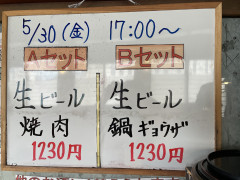 5/30(金) 17:00～
Aセット
生ビール
焼肉
1230円
Bセット
生ビール
鍋ギョウザ
1230円